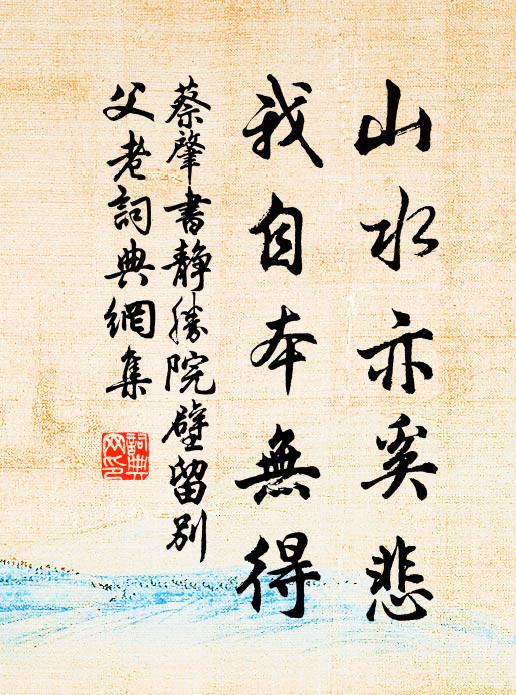 山水亦奚悲
我自本無得
蔡肇書靜勝院壁留別
父老詞典網集
詞典
网印